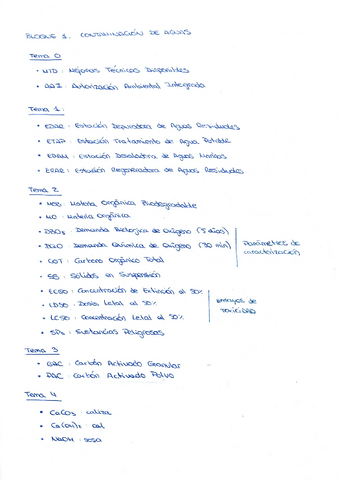 BLOQUE 1. CONTAMINACIÓN DE AGUAS
Tema 0
• MTD: Mejores Técnicas Disponibles
• AAI: Autorización Ambiental Integrada
Tema 1:
• EDAR: Estación Depuradora de Aguas Residuales
• ETAP: Estación Tratamiento de Agua Potable
• EDAM: Estación Desaladora de Aguas Marinas
• ERAR: Estación Regeneradora de Aguas Residuales
Tema 2
• MOB: Materia Orgánica Biodegradable
• MO: Materia Orgánica
• DBO5: Demanda Biológica de Oxígeno (5 días)
• DQO: Demanda Química de Oxígeno (30 min)
Parámetros de caracterización
• COT: Carbono Orgánico Total
• SS: Sólidos en Suspensión
• EC50: Concentración de Extinción al 50%
• LD50: Dosis Letal al 50%
• LC50: Concentración Letal al 50%
ensayos de toxicidad
• SPs: Sustancias Peligrosas
Tema 3
• GAC: Carbón Activado Granular
• PAC: Carbón Activado Polvo
Tema 4
• CaCO3: caliza
• Ca(OH)2: cal
• NaOH: sosa